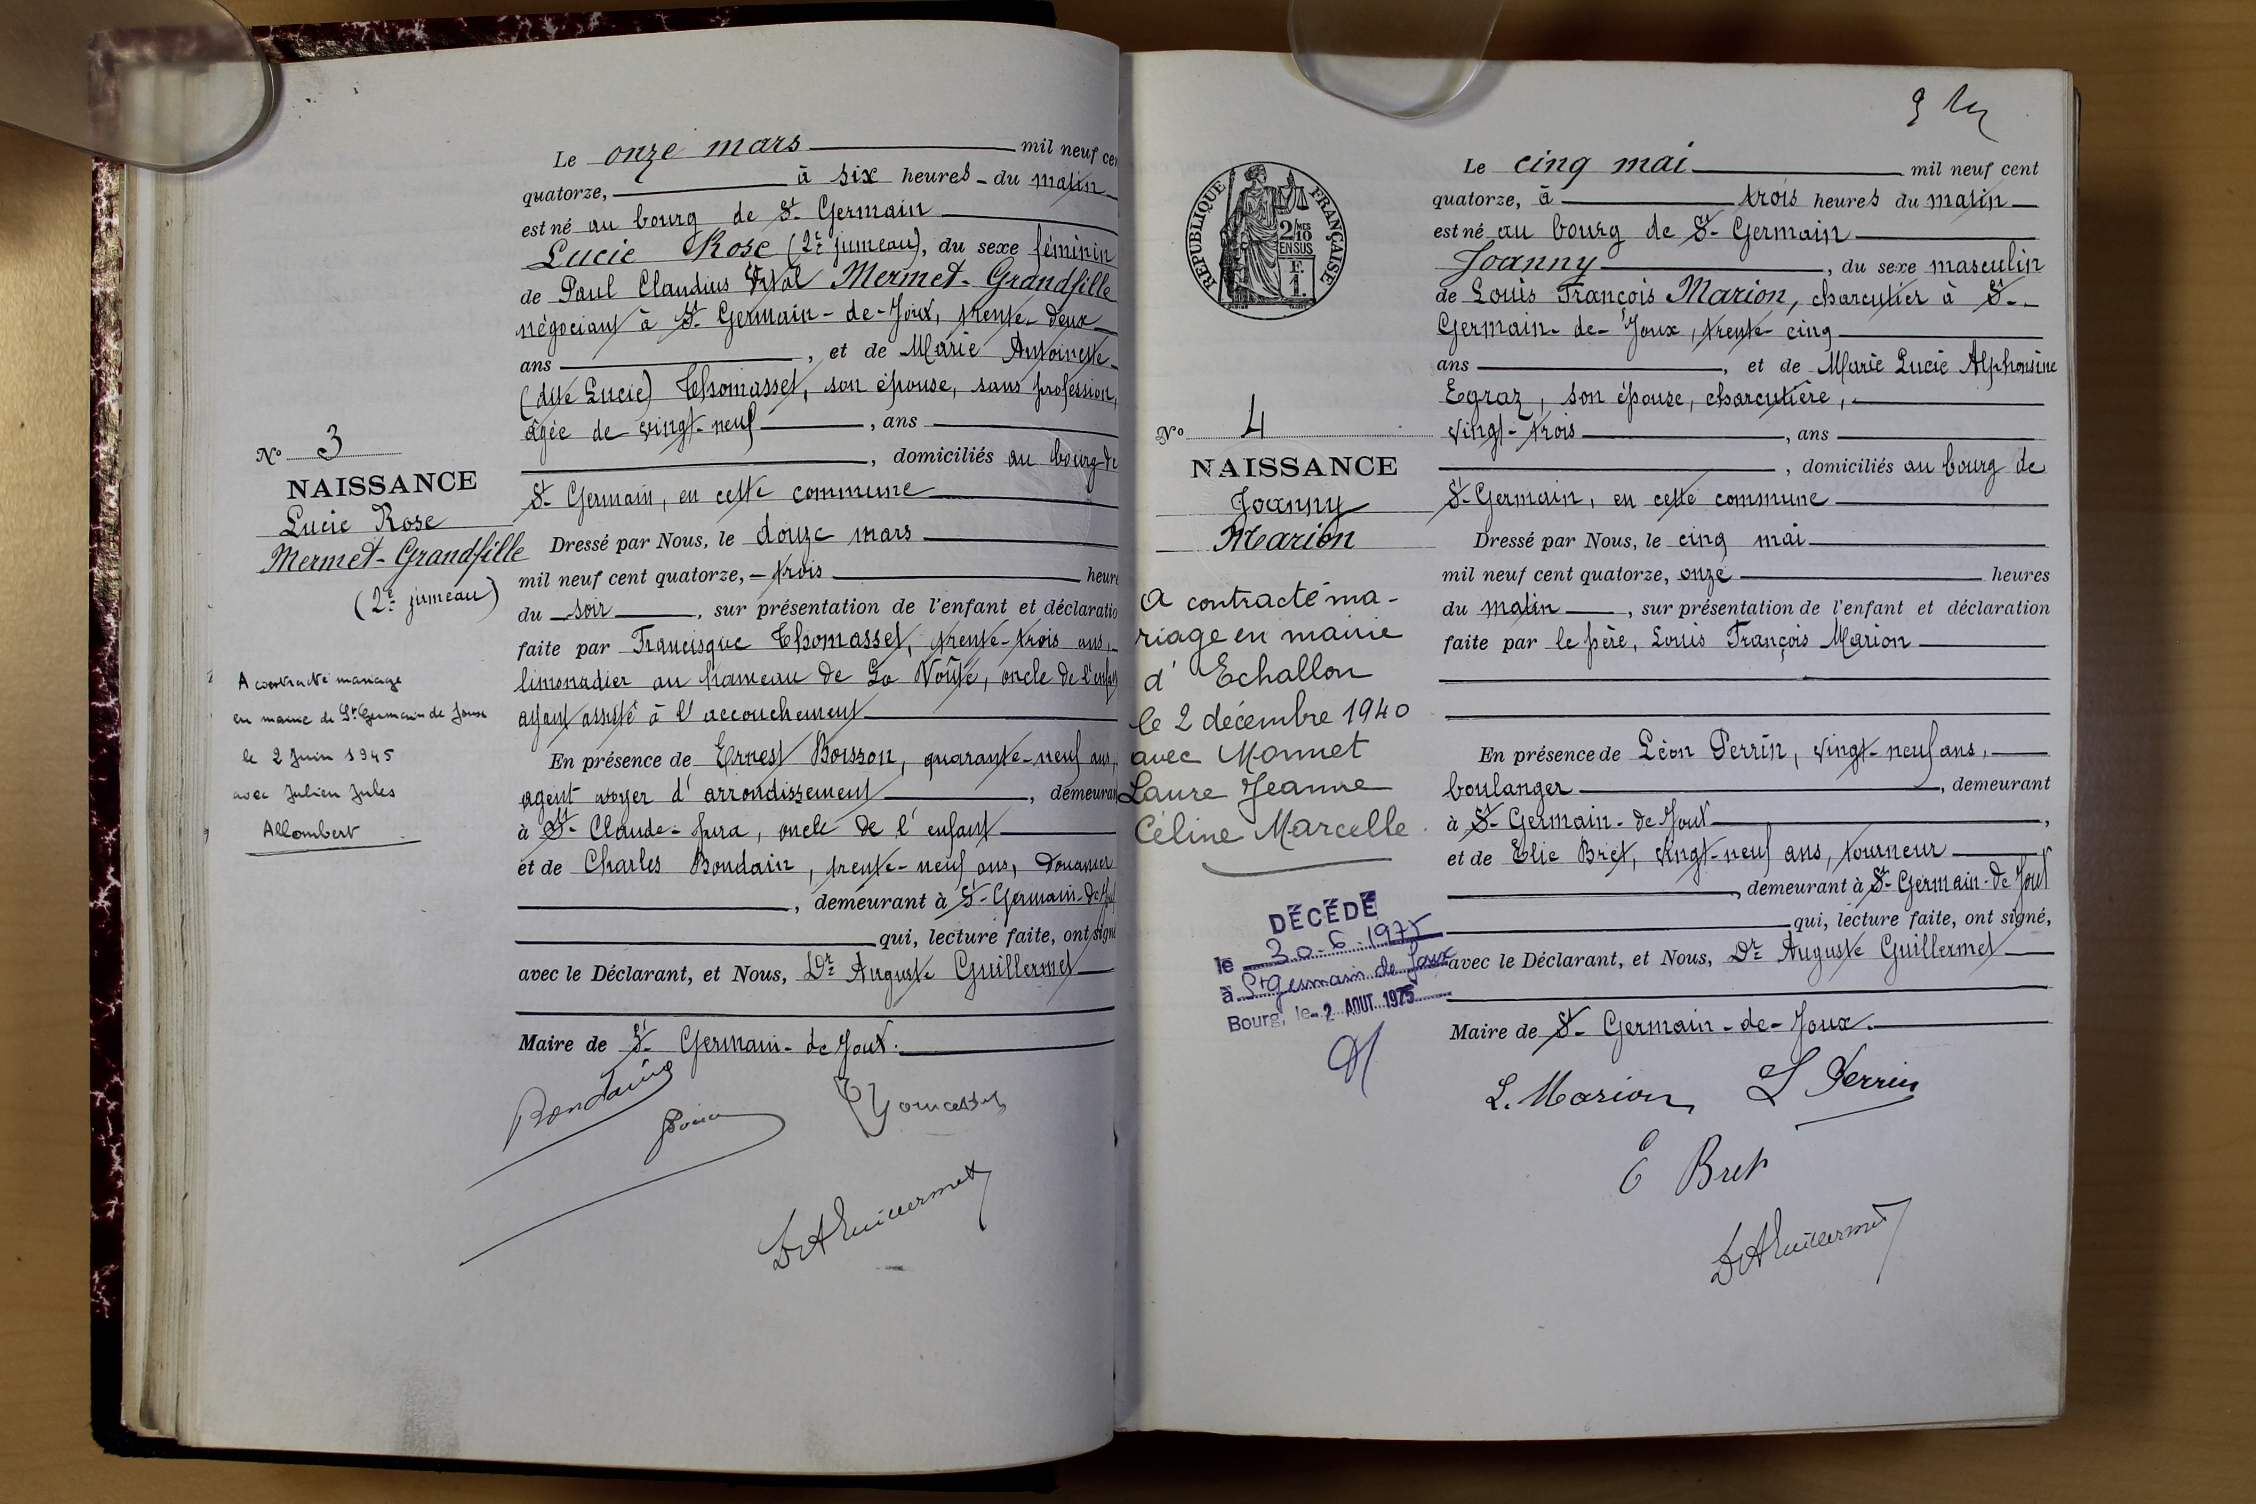 Le onze mars mil neuf cen
quatorze, à six heures du matin
est né au bourg de St Germain
Lucie Rose (2e jumeau), du sexe féminin
de Paul Claudius Vital Mermet-Grandfille
négociant à St Germain-de-Joux, trente-deux
ans, et de Marie Antoinette
(dite Lucie) Thomasset, son épouse, sans profession,
âgée de vingt-neuf, ans
, domiciliés au bourg de
St Germain, en cette commune
Dressé par Nous, le douze mars
mil neuf cent quatorze, trois heure
du soir, sur présentation de l'enfant et déclaratio
faite par Francisque Thomasset, trente-trois ans,
limonadier au hameau de La Voûte, oncle de l'enfant
ayant assisté à l'accouchement
En présence de Ernest Boisson, quarante-neuf ans,
agent voyer d'arrondissement, demeuran
à St-Claude-Jura, oncle de l'enfant
et de Charles Bondain, trente-neuf ans, douanier
, demeurant à St-Germain-de-Joux
qui, lecture faite, ont signé
avec le Déclarant, et Nous, Dr Auguste Guillermet
Maire de St Germain-de-Joux.
Thomasset
Dr A Guillermet
No 3
NAISSANCE
Lucie Rose
Mermet-Grandfille
(2e jumeau)
A contracté mariage
en mairie de St Germain de Joux
le 2 Juin 1945
avec Julien Jules
Allombert
9
RÉPUBLIQUE FRANÇAISE
2 MES
10
EN SUS
F.
1.
Le cinq mai mil neuf cent
quatorze, à trois heures du matin
est né au bourg de St-Germain
Joanny, du sexe masculin
de Louis François Marion, charcutier à St-
Germain-de-Joux, trente cinq
ans, et de Marie Lucie Alphonsine
Egraz, son épouse, charcutière,
vingt-trois, ans
, domiciliés au bourg de
St-Germain, en cette commune
Dressé par Nous, le cinq mai
mil neuf cent quatorze, onze heures
du matin, sur présentation de l'enfant et déclaration
faite par le père, Louis François Marion
En présence de Léon Perrin, vingt-neuf ans,
boulanger, demeurant
à St-Germain-de-Joux,
et de Elie Bret, vingt-neuf ans, tourneur
, demeurant à St-Germain-de-Joux
qui, lecture faite, ont signé,
avec le Déclarant, et Nous, Dr Auguste Guillermet
Maire de St-Germain-de-Joux.
L. Marion L Perrin
E Bret
Dr A Guillermet
No 4
NAISSANCE
Joanny
Marion
A contracté ma-
riage en mairie
d'Echallon
le 2 décembre 1940
avec Monnet
Laure Jeanne
Céline Marcelle
DÉCÉDÉ
le 30-6-1975
à St Germain de Joux
Bourg, le -2 AOUT 1975